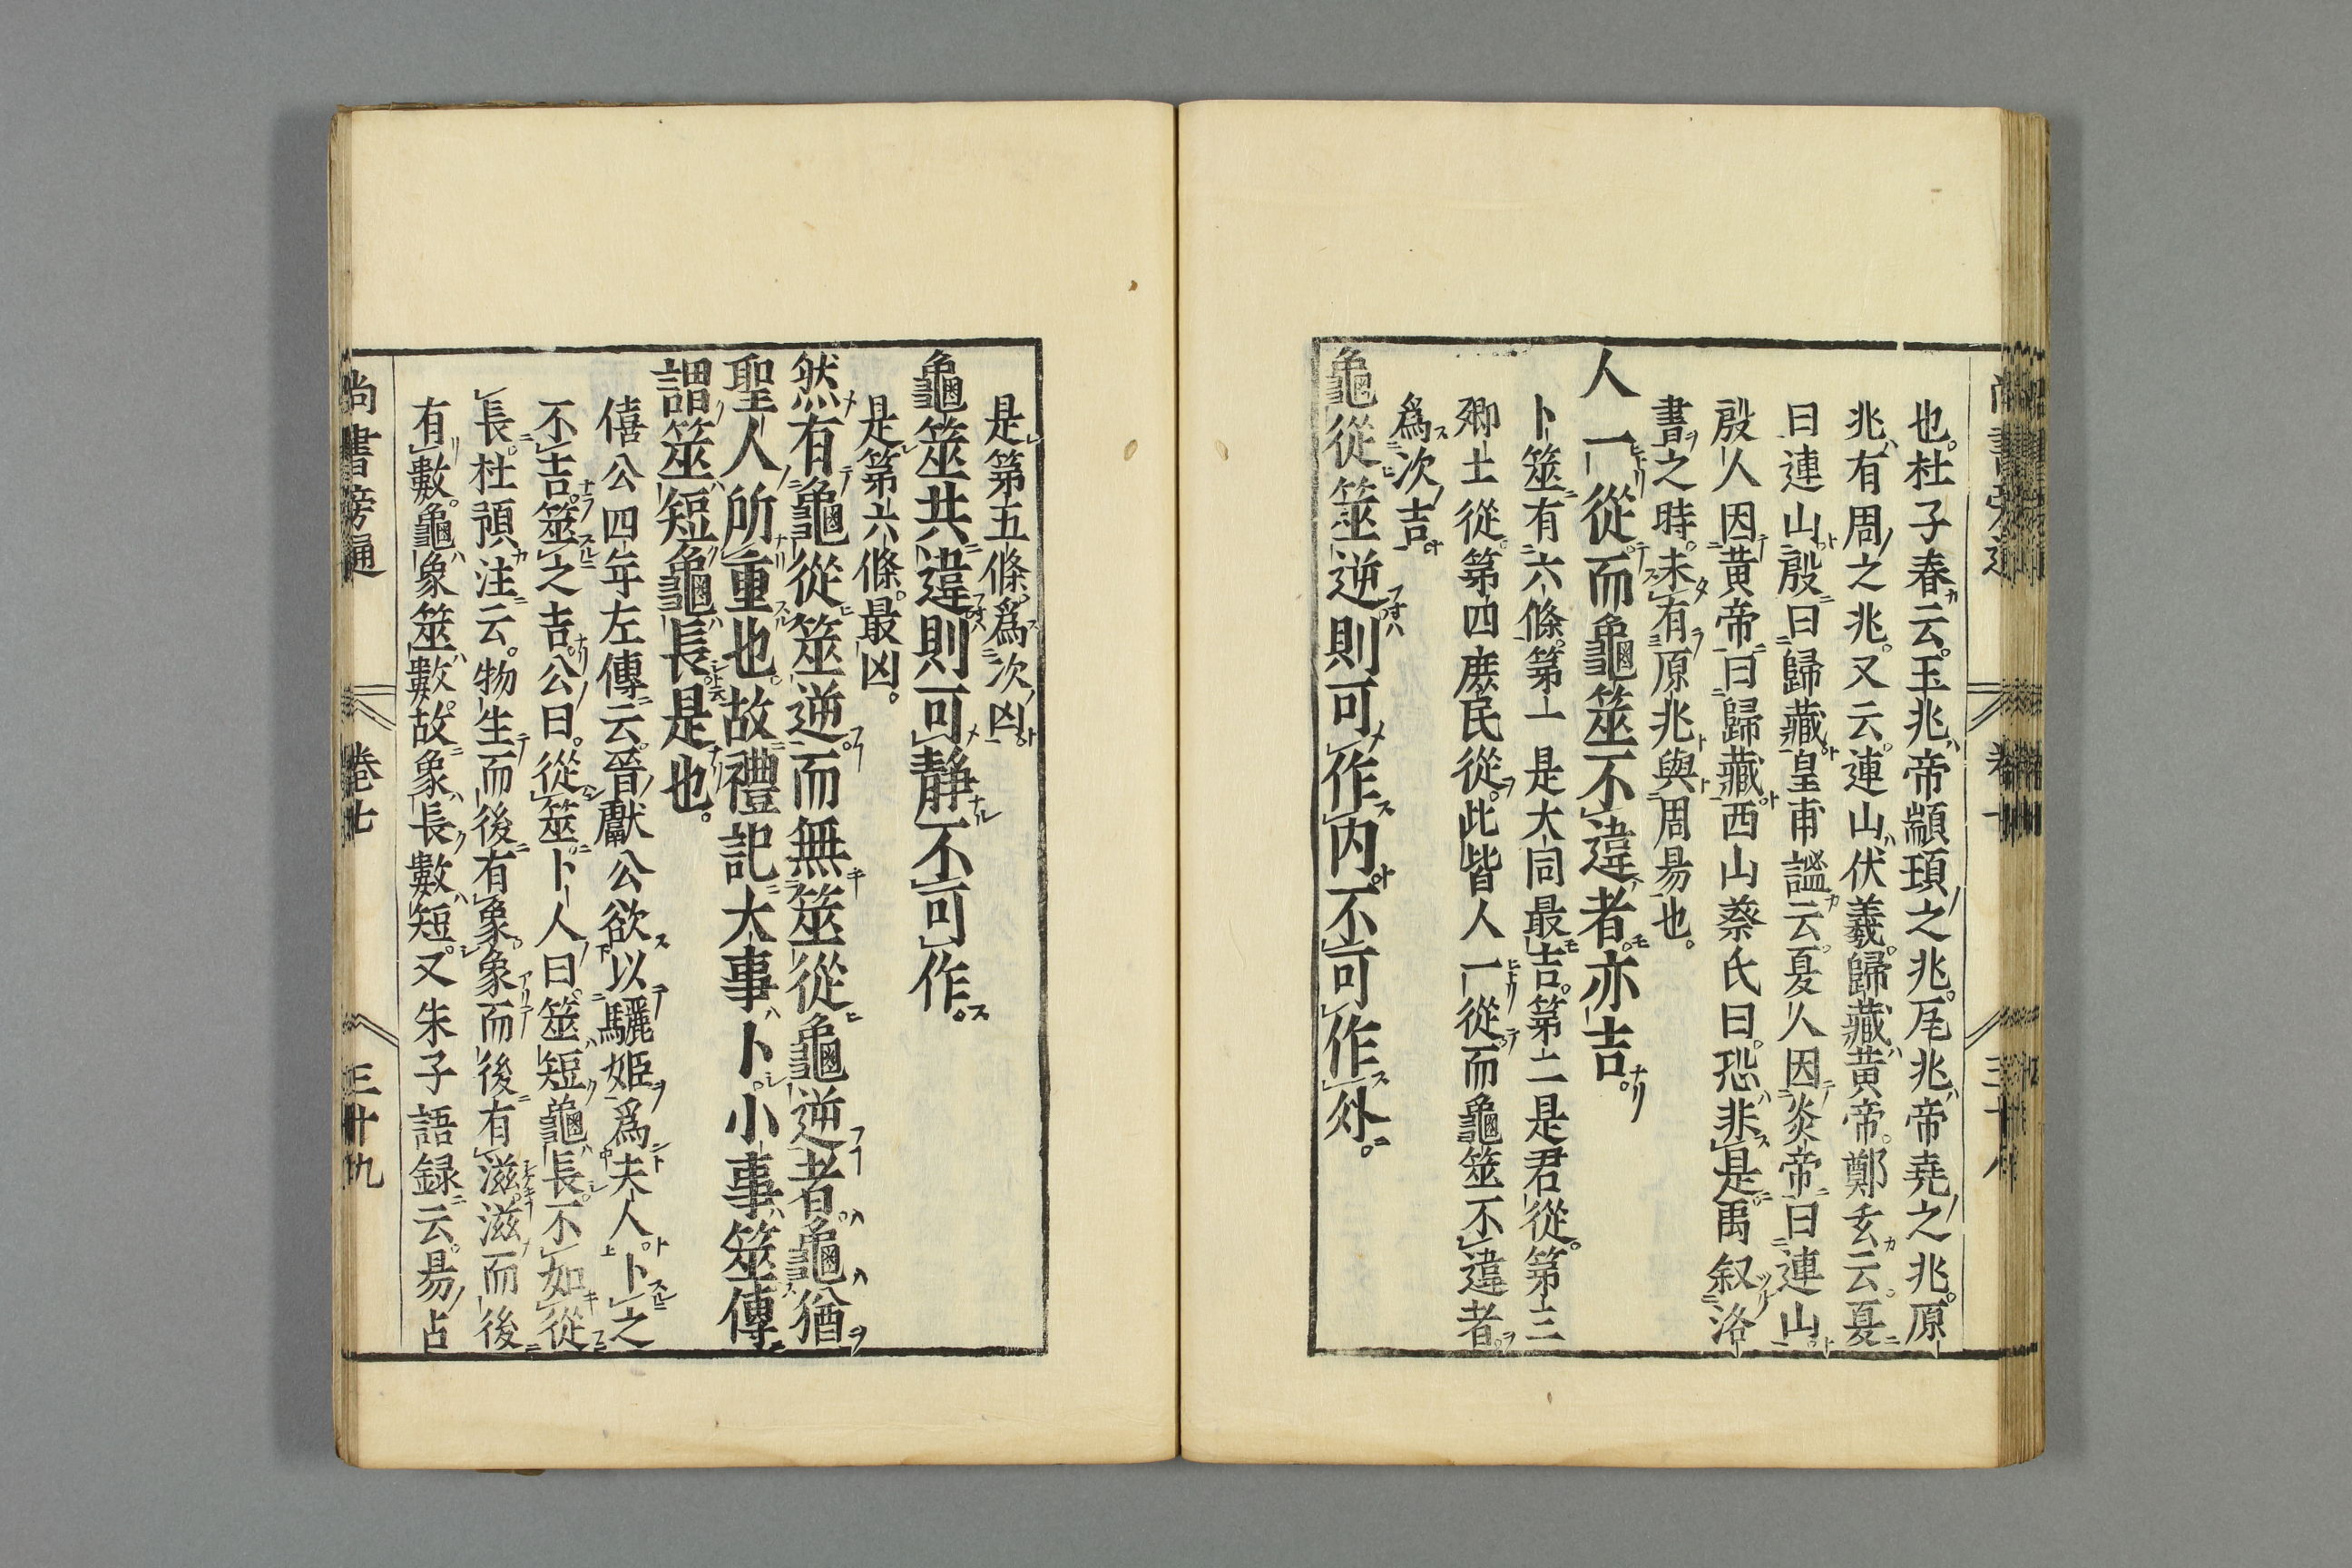 也。杜子春云。玉兆。帝顓頊之兆。瓦兆。帝堯之兆。原
兆。有周之兆。又云。連山。伏羲。歸藏。黄帝。鄭玄云。夏
曰連山。殷曰歸藏。皇甫謐云。夏人因炎帝曰連山。
殷人因黄帝曰歸藏。西山蔡氏曰。恐非是禹叙洛
書之時。未有原兆與周易也。
人一從而龜筮不違者。亦吉。
卜筮有六條。第一是大同最吉。第二是君從。第三
卿士從。第四庶民從。此皆人一從而龜筮不違者。
爲次吉。
龜從筮逆則可作内。不可作外。
是第五條。爲次凶。
龜筮共違則可静。不可作。
是第六條。最凶。
然有龜從筮逆。而無筮從龜逆者。龜猶
聖人所重也。故禮記大事卜。小事筮。傳
謂筮短龜長是也。
僖公四年左傳云。晉獻公欲以驪姬爲夫人。卜之
不吉。筮之吉。公曰。從筮。卜人曰。筮短龜長。不如從
長。杜預注云。物生而後有象。象而後有滋。滋而後
有數。龜象筮數。故象長數短。又朱子語録云。易占
尚書旁通 卷七 三十九